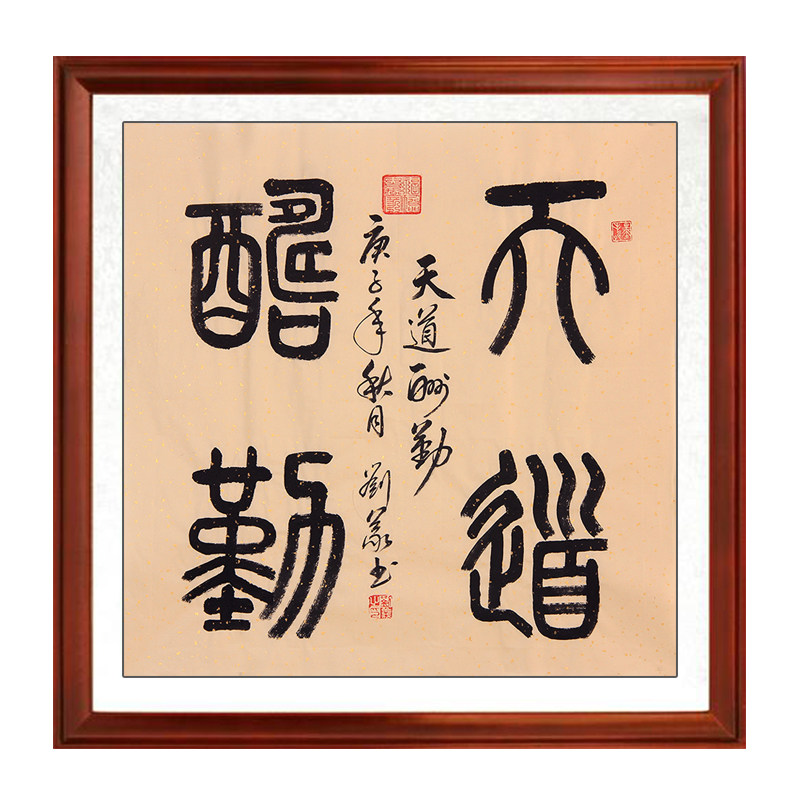 天道
酬勤
天道酬勤
庚子年秋月 劉 书